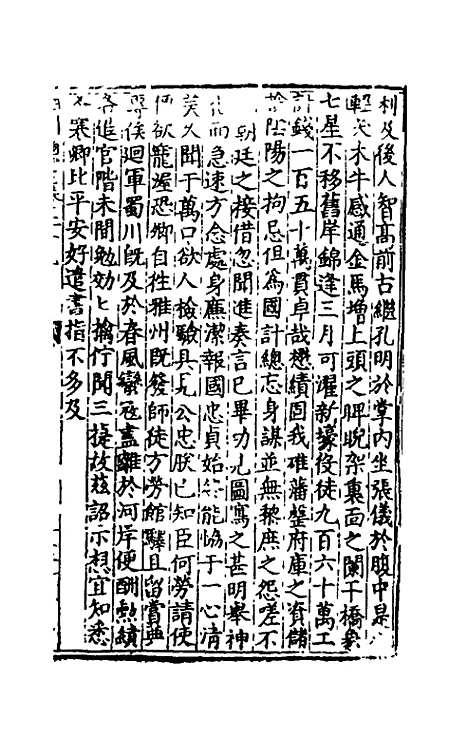 利及後人智髙前古繼孔明於掌内坐張儀於腹中是
犬木牛感通金馬增上頭之睥睨架裏面之闌干橋象
七星不移舊岸錦逢三月可濯新壕役徒九百六十萬工
計錢一百五十萬貫卓哉懋績固我雄藩盤府庫之資儲
陰陽之拘忌但為國計總忘身謀並無黎庶之怨嗟不
朝廷之接借忽聞進奏言已畢功兼圖寫之甚明舉神
而急速方念處身廉潔報國忠貞始能協于一心清
美久聞于萬口欲人檢驗具見公忠朕已知臣何勞請使
欲寵渥恐卿自往雅州旣發師徒方勞館驛且留賞典
俟迴軍蜀川旣及於春風蠻寇盡離於河岸便酬勲績
各進官階未間勉効七擒佇聞三捷故兹詔示想宜知悉
寒卿比平安好遣書指不多及